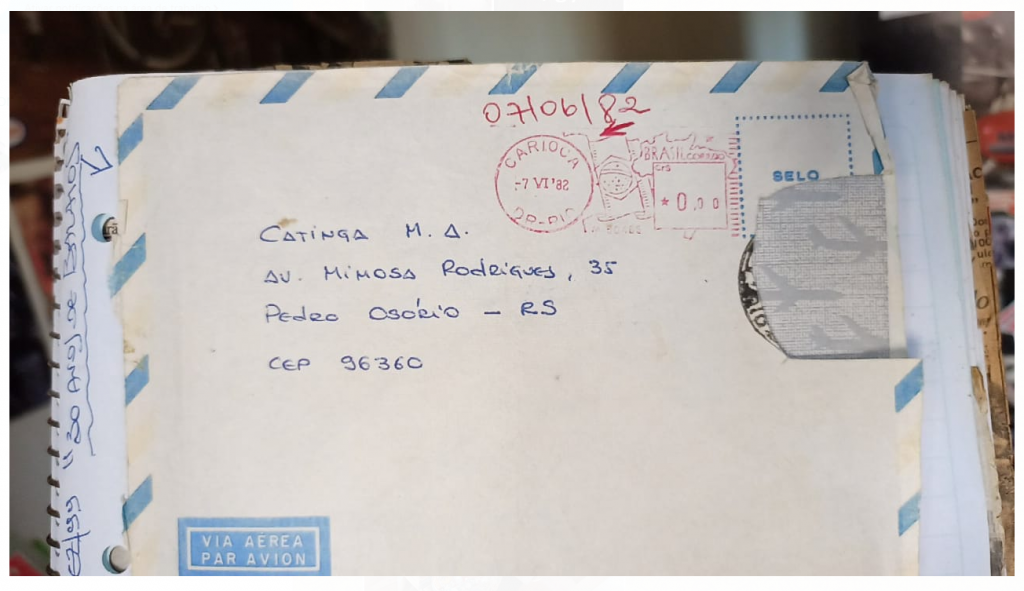 07/06/82
CARIOCA
-7 VI'82
DR-RIO
BRASIL CORREIO
Cr$
* 0,00
SELO
CATINGA M. A.
AV. MIMOSA RODRIGUES, 35
PEDRO OSÓRIO - RS
CEP 96360
VIA AÉREA
PAR AVION
30 ANOS DE